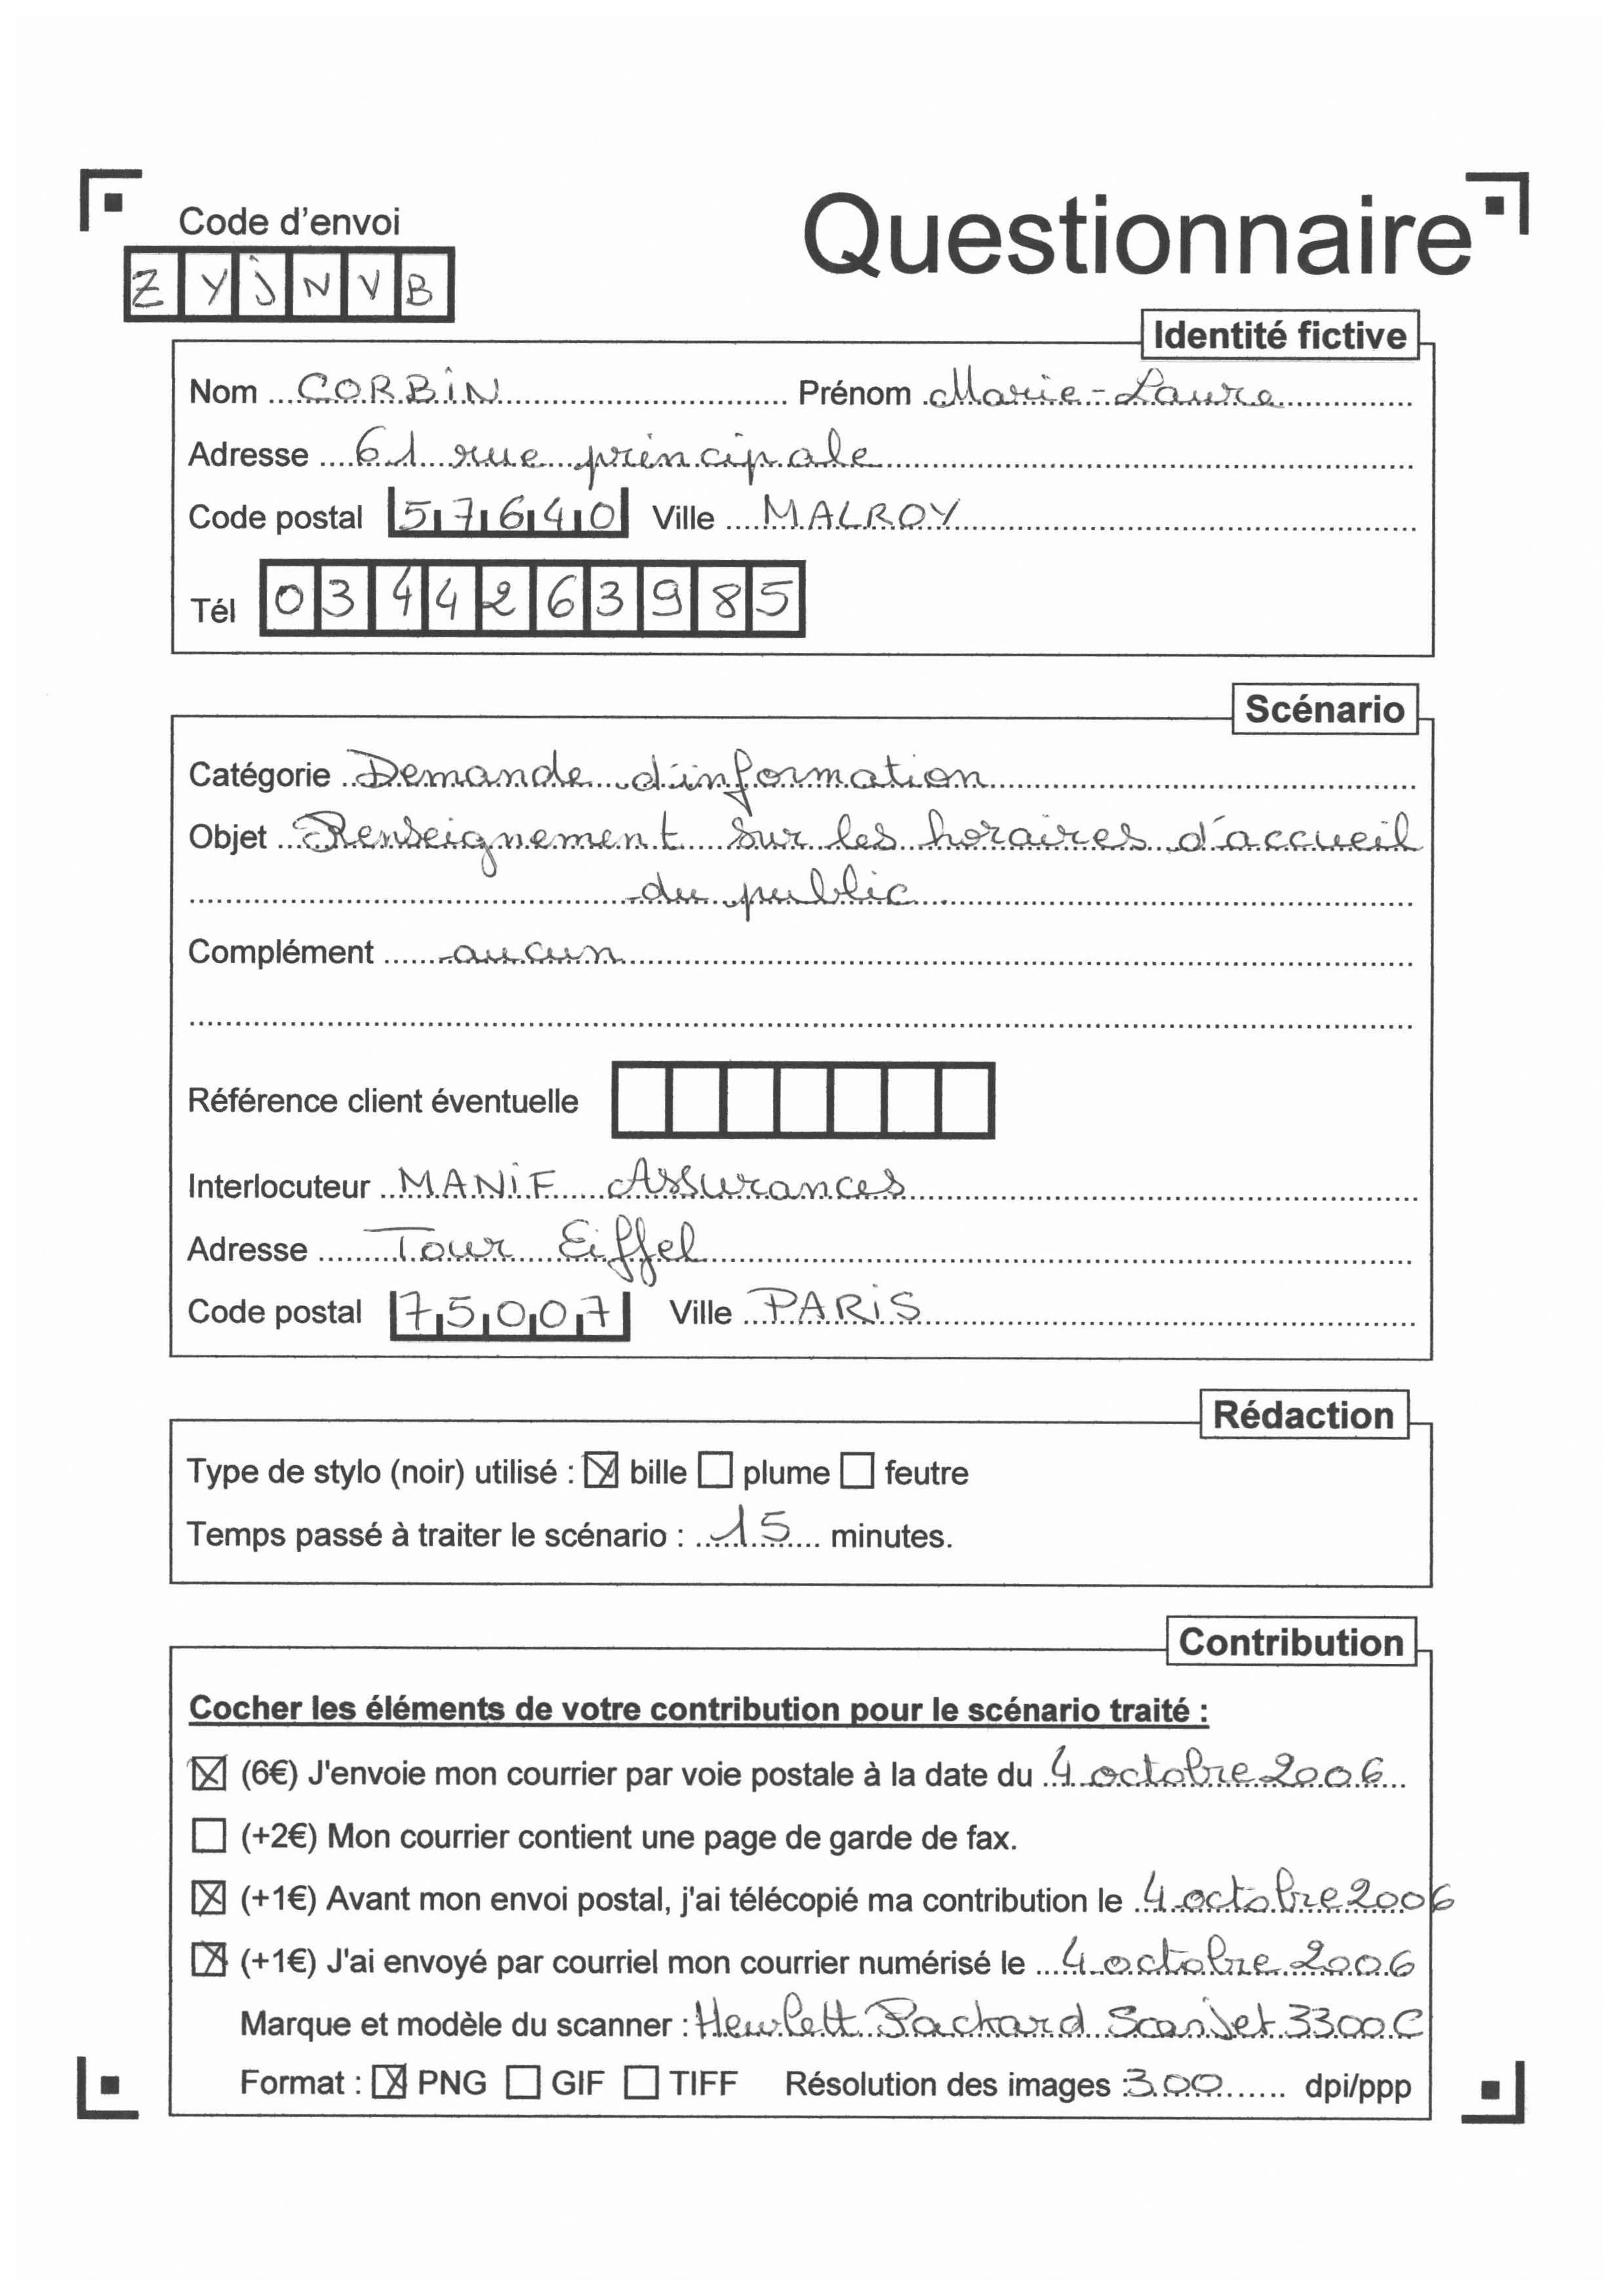 Code d'envoi
Questionnaire
Z Y J N V B
Identité fictive
Nom CORBIN Prénom Marie-Laure
Adresse 61 rue principale
Code postal 57640 Ville MALROY
Tél 0344263985
Scénario
Catégorie Demande d'information
Objet Renseignement sur les horaires d'accueil
du public
Complément aucun
Référence client éventuelle
Interlocuteur MANIF Assurances
Adresse Tour Eiffel
Code postal 75007 Ville PARIS
Rédaction
Type de stylo (noir) utilisé : ☒ bille ☐ plume ☐ feutre
Temps passé à traiter le scénario : 15 minutes.
Contribution
Cocher les éléments de votre contribution pour le scénario traité :
☒ (6€) J'envoie mon courrier par voie postale à la date du 4 octobre 2006
☐ (+2€) Mon courrier contient une page de garde de fax.
☒ (+1€) Avant mon envoi postal, j'ai télécopié ma contribution le 4 octobre 2006
☒ (+1€) J'ai envoyé par courriel mon courrier numérisé le 4 octobre 2006
Marque et modèle du scanner : Hewlett Packard ScanJet 3300C
Format : ☒ PNG ☐ GIF ☐ TIFF Résolution des images : 300 dpi/ppp